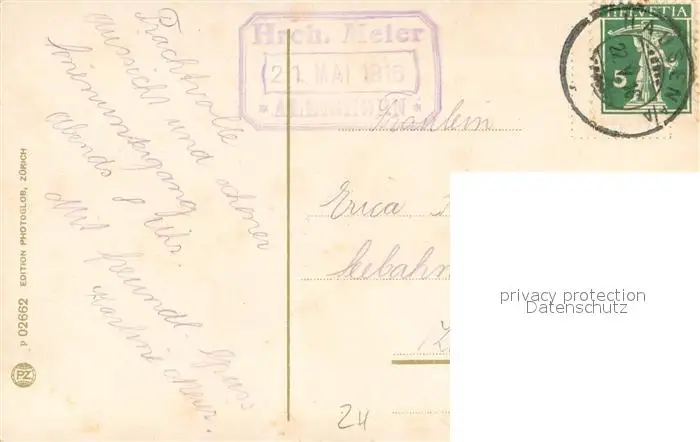 Prachtvolle
Aussicht und schöner
Sonnenuntergang
abends 8 Uhr.
Mit freundl. Gruss
Meier.
Hrch. Meier
21. MAI 1916
* ALBISHORN *
HELVETIA
5
Fräulein
Erica
Seebahn
Z
24
P 02662 EDITION PHOTOGLOB, ZÜRICH
PZ
privacy protection
Datenschutz